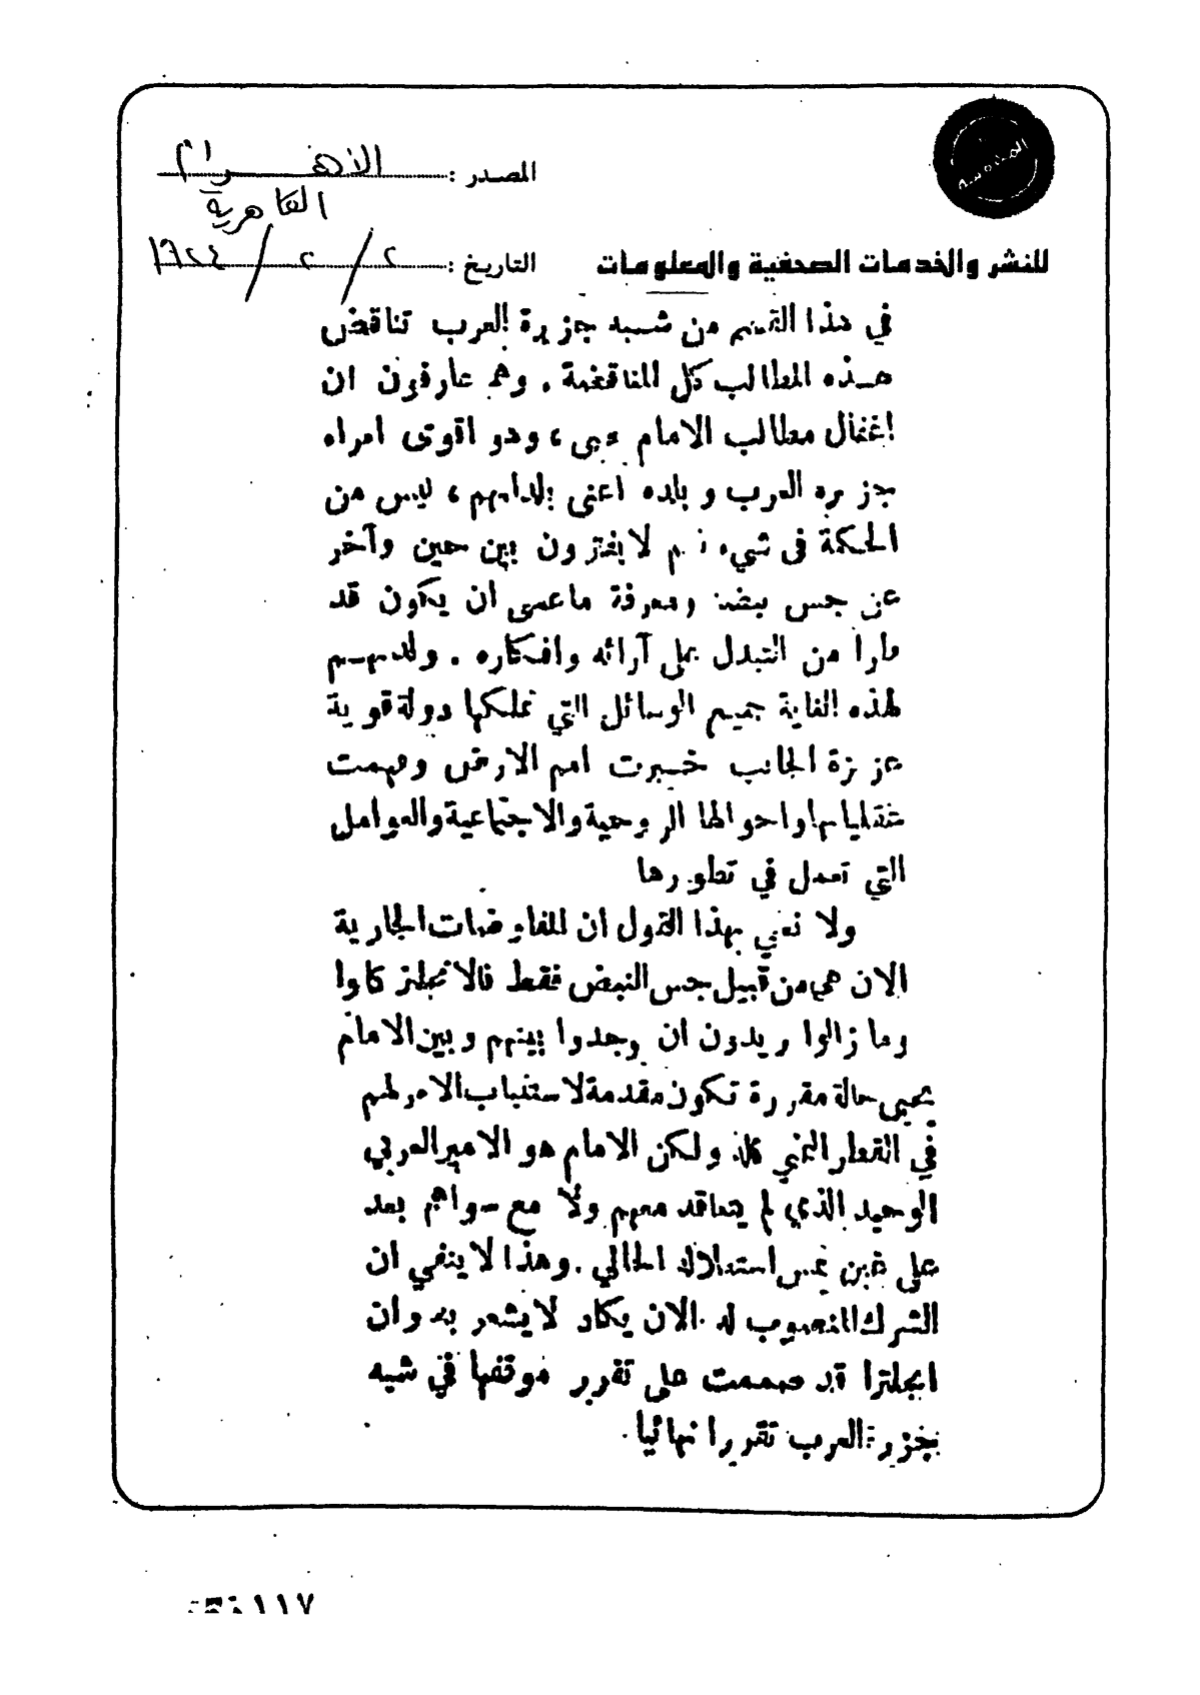 المصدر : الأهرام
القاهرية
التاريخ : ٢ / ٢ / ١٩٢٤
للنشر والخدمات الصحفية والمعلومات
في هذا القسم من شبه جزيرة العرب تناقض
هذه المطالب كل المناقضة . وهم عارفون ان
اغفال مطالب الامام يحيى ، وهو اقوى امراء
جزيرة العرب وبلاده اغنى بلدانهم ، ليس من
الحكمة في شيء لا يفترون بين حين وآخر
عن جس نبضه ومعرفة ما عسى ان يكون قد
طرأ من التبدل على آرائه وافكاره . ولديهم
لهذه الغاية جميع الوسائل التي تملكها دولة قوية
عزيزة الجانب خبرت امم الارض وفهمت
واحوالها الروحية والاجتماعية والعوامل
التي تعمل في تطورها
ولا نعني بهذا القول ان المفاوضات الجارية
الان هي من قبيل جس النبض فقط فالانجليز كانوا
وما زالوا يريدون ان يوجدوا بينهم وبين الامام
يحيى حالة مقررة تكون مقدمة لاستتباب الامر لهم
في القطر اليمني كله ولكن الامام هو الامير العربي
الوحيد الذي لم يتعاقد معهم ولا مع سواهم بعد
على الحالي . وهذا لا ينفي ان
الشرك المنصوب له الان يكاد لا يشعر به وان
انجلترا قد صممت على تقرير موقفها في شبه
جزيرة العرب تقريرا نهائيا .
١١٧